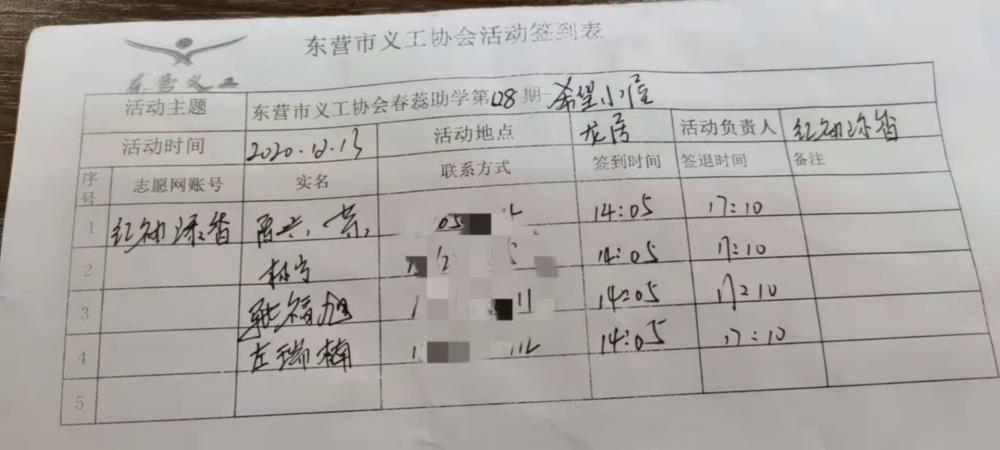 东营市义工协会活动签到表
东营义工
活动主题 东营市义工协会春蕊助学第128期-希望小屋
活动时间 2020.12.13 活动地点 龙居 活动负责人 红袖添香
序号 志愿网账号 实名 联系方式 签到时间 签退时间 备注
1 红袖添香 14:05 17:10
2 林宁 14:05 17:10
3 耿福旭 14:05 17:10
4 左瑞楠 14:05 17:10
5